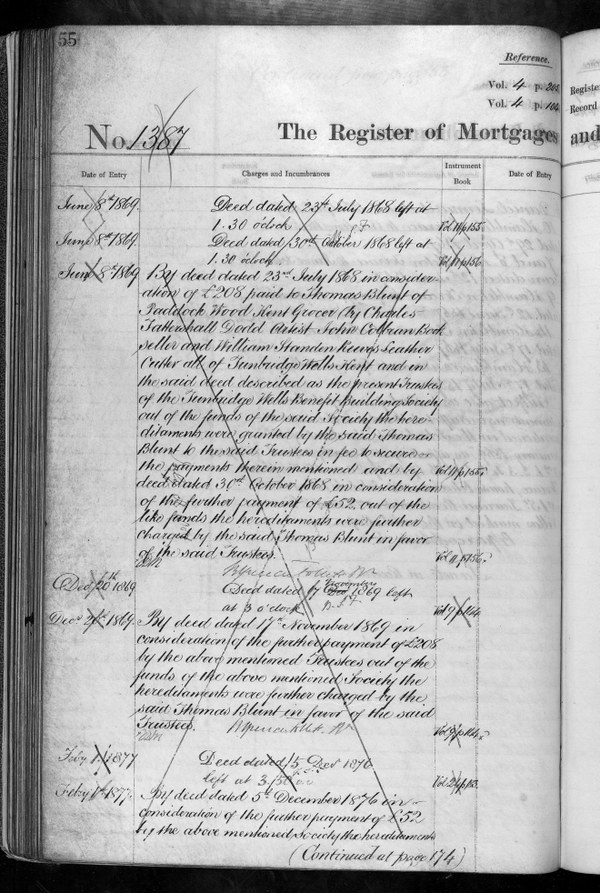 55
Reference.
Vol. 4 p. 202
Vol. 4 p. 104
No. 1387 The Register of Mortgages and
Register
Record
Date of Entry Charges and Incumbrances Instrument Book Date of Entry
June 8th 1869. Deed dated 23rd July 1868 left at
1.30 o'clock Vol 11 p 155
June 8th 1869. Deed dated 30th October 1868 left at
1.30 o'clock Vol 11 p 156
June 8th 1869 By deed dated 23rd July 1868 in consider-
ation of £208 paid to Thomas Blunt of
Paddock Wood Kent Grocer by Charles
Tattershall Dodd Artist John Colbran Book
seller and William Standen Reeves Leather
Cutter all of Tunbridge Wells Kent and in
the said deed described as the present Trustees
of the Tunbridge Wells Benefit Building Society
out of the funds of the said Society the here-
ditaments were granted by the said Thomas
Blunt to the said Trustees in fee to secure
the payments therein mentioned and by Vol 11 p 155
deed dated 30th October 1868 in consideration
of the further payment of £52 out of the
like funds the hereditaments were further
charged by the said Thomas Blunt in favor
of the said Trustees. Vol 11 p 156
Decr 20th 1869 Deed dated 17 November 1869 left
at 3 o'clock Vol 9 p 144
Decr 1869. By deed dated 17th November 1869 in
consideration of the further payment of £208
by the above mentioned Trustees out of the
funds of the above mentioned Society the
hereditaments were further charged by the
said Thomas Blunt in favor of the said
Trustees. Vol 9 p 144
Feby 1877 Deed dated 5 Decr 1876
left at 3.30 Vol 24 p
Feby 1877. By deed dated 5th December 1876 in
consideration of the further payment of £52
by the above mentioned Society the hereditaments
(Continued at page 174)